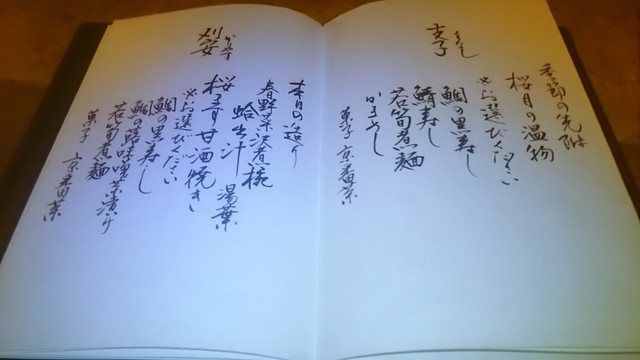 支子
季節の先附
桜月の温物
※お選びください
鯛の黒寿し
鯖寿し
若筍煮麺
菓子 京番茶
刈安
かりやす
本日の造り
春野菜沢煮椀
蛤出汁 湯葉
甘酒焼き
※お選びください
鯛の黒寿し
鯛の蕗味噌茶漬け
若筍煮麺
菓子 京番茶